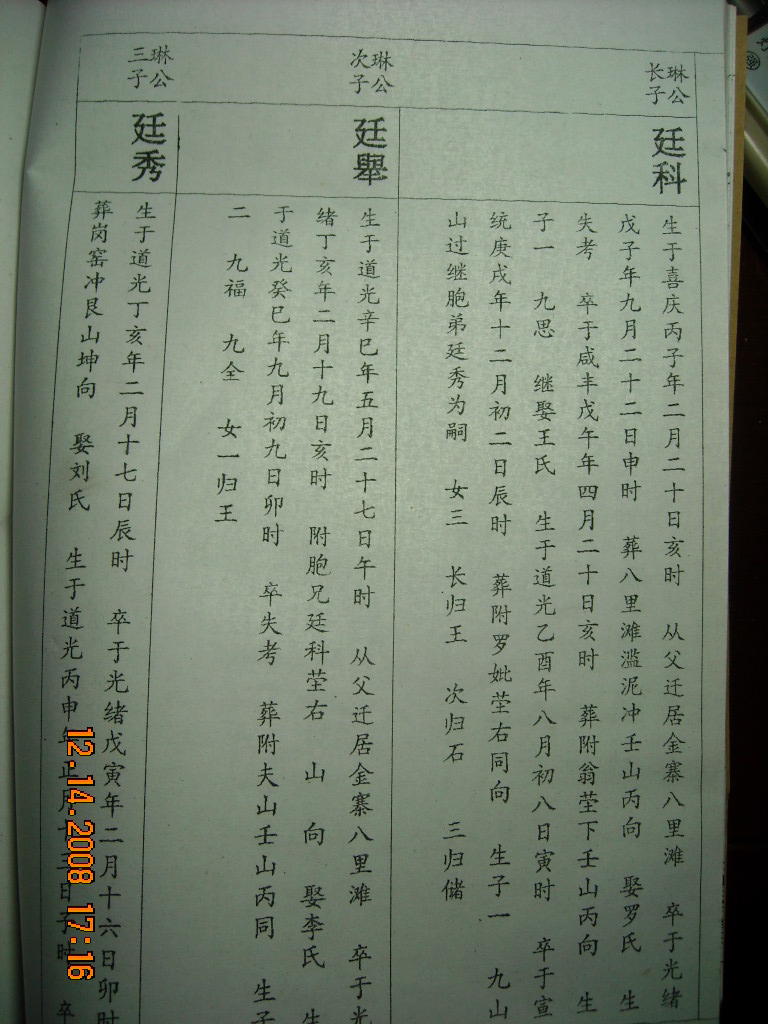 琳公
长子
廷科
生于喜庆丙子年二月二十日亥时 从父迁居金寨八里滩 卒于光绪
戊子年九月二十二日申时 葬八里滩滥泥冲壬山丙向 娶罗氏 生
失考 卒于咸丰戊午年四月二十日亥时 葬附翁茔下壬山丙向 生
子一 九思 继娶王氏 生于道光乙酉年八月初八日寅时 卒于宣
统庚戌年十二月初二日辰时 葬附罗妣茔右同向 生子一 九山
山过继胞弟廷秀为嗣 女三 长归王 次归石 三归储
琳公
次子
廷舉
生于道光辛巳年五月二十七日午时 从父迁居金寨八里滩 卒于光
绪丁亥年二月十九日亥时 附胞兄廷科茔右 山 向 娶李氏 生
于道光癸巳年九月初九日卯时 卒失考 葬附夫山壬山丙同 生子
二 九福 九全 女一归王
琳公
三子
廷秀
生于道光丁亥年二月十七日辰时 卒于光绪戊寅年二月十六日卯时
葬岗窑冲艮山坤向 娶刘氏 生于道光丙申年正月十三日子时 卒
12.14.2008 17:16